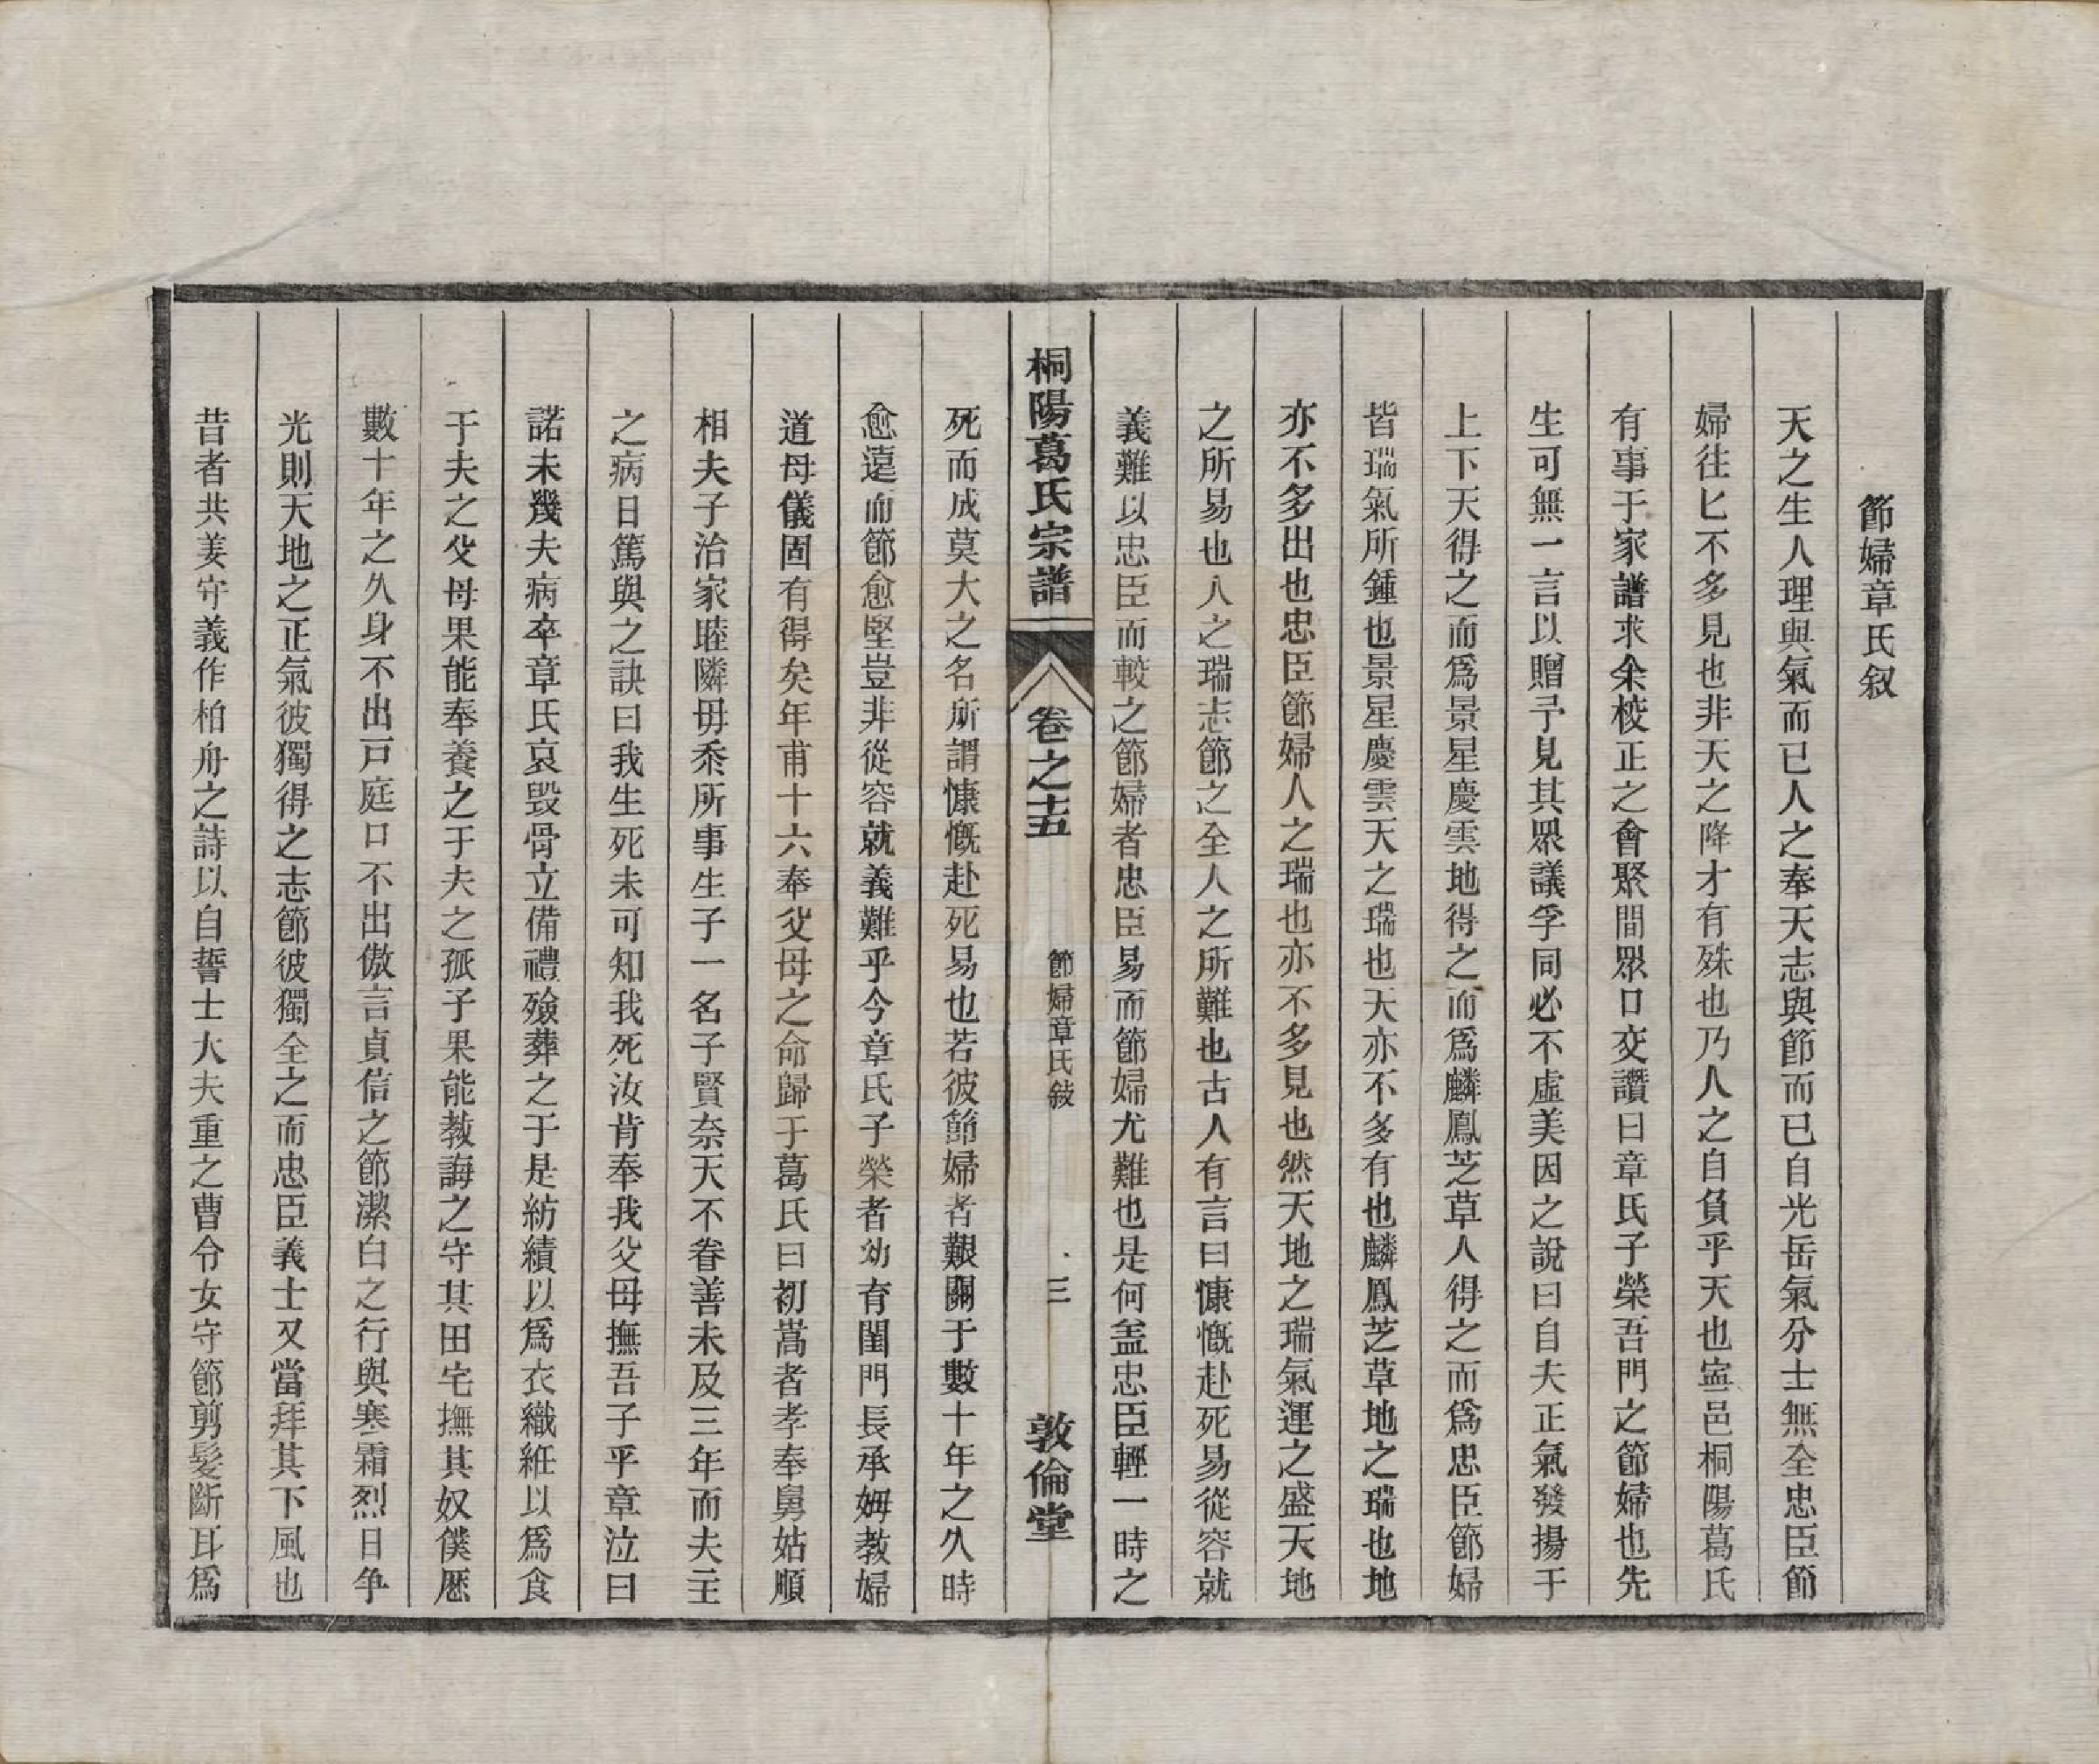 節婦章氏叙
天之生人理與氣而已人之奉天志與節而已自光岳氣分士無全忠臣節
婦往匕不多見也非天之降才有殊也乃人之自負乎天也寧邑桐陽葛氏
有事于家譜求余校正之會聚間眾口交讚曰章氏子榮吾門之節婦也先
生可無一言以贈予見其眾議孚同必不虛美因之說曰自夫正氣發揚于
上下天得之而爲景星慶雲地得之而爲麟鳳芝草人得之而爲忠臣節婦
皆瑞氣所鍾也景星慶雲天之瑞也天亦不多有也麟鳳芝草地之瑞也地
亦不多出也忠臣節婦人之瑞也亦不多見也然天地之瑞氣運之盛天地
之所易也人之瑞志節之全人之所難也古人有言曰慷慨赴死易從容就
義難以忠臣而較之節婦者忠臣易而節婦尤難也是何盖忠臣輕一時之
桐陽葛氏宗譜
卷之十五
節婦章氏敍
三
敦倫堂
死而成莫大之名所謂慷慨赴死易也若彼節婦者艱關于數十年之久時
愈遠而節愈堅豈非從容就義難乎今章氏子榮者幼育閨門長承姆教婦
道母儀固有得矣年甫十六奉父母之命歸于葛氏曰初嵩者孝奉舅姑順
相夫子治家睦隣毋忝所事生子一名子賢奈天不眷善未及三年而夫主
之病日篤與之訣曰我生死未可知我死汝肯奉我父母撫吾子乎章泣曰
諾未幾夫病卒章氏哀毀骨立備禮殮葬之于是紡績以爲衣織紝以爲食
于夫之父母果能奉養之于夫之孤子果能教誨之守其田宅撫其奴僕歷
數十年之久身不出戸庭口不出傲言貞信之節潔白之行與寒霜烈日争
光則天地之正氣彼獨得之志節彼獨全之而忠臣義士又當拜其下風也
昔者共姜守義作柏舟之詩以自誓士大夫重之曹令女守節剪髮斷耳爲